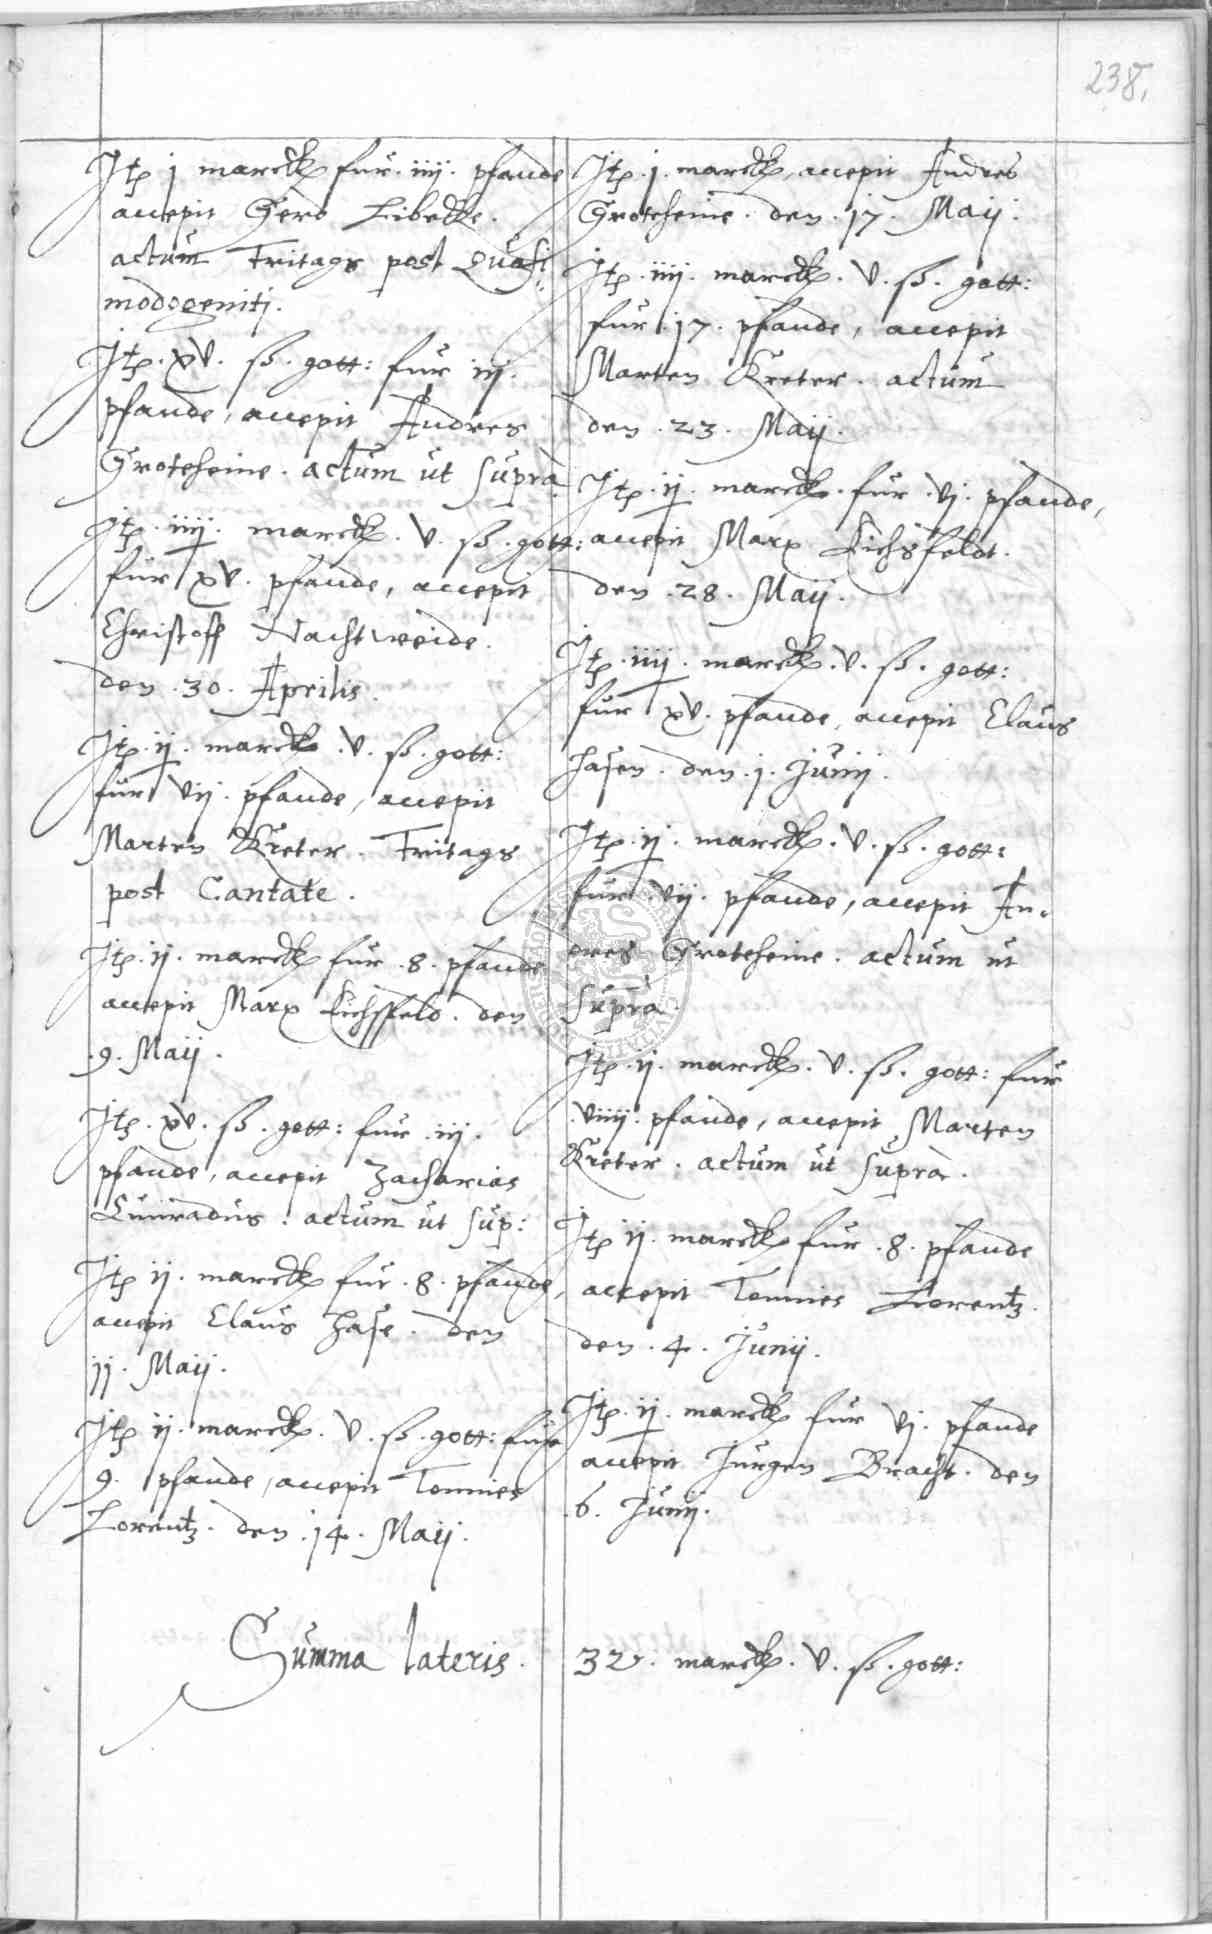 238.
Itꝑ j marck fur. iiij. pfande
accepit Gerd Libecke.
actum Fritags post Quasi
modogeniti.
Itꝑ. xv. ß. gott: fur iij.
pfande, accepit Andres
Groteheine. actum ut suprà
Itꝑ. iiij. marck. v. ß. gott:
fur xv. pfande, accepit
Christoff Nachtweide.
den. 30. Aprilis.
Itꝑ. ij. marck. v. ß. gott:
fur vij. pfande, accepit
Marten Kreter. Fritags
post Cantate.
Itꝑ. ij. marck fur. 8. pfande
accepit Marx Eichsfeld. den
.9. Maij.
Itꝑ. xv. ß. gott: fur. iij.
pfande, accepit Zacharias
Cunradus. actum ut sup:
Itꝑ ij. marck fur. 8. pfande,
accepit Claus Hase. den
jj. Maij.
Itꝑ ij. marck. v. ß. gott: fur
9. pfande, accepit Tonnies
Lorentz. den. j4. Maij.
Itꝑ. j. marck, accepit Andres
Groteheine. den. j7. Maij.
Itꝑ. iiij. marck. v. ß. gott:
fur. j7. pfande, accepit
Marten Kreter. actum
den. 23. Maij.
Itꝑ. ij. marck. fur. vj. pfande,
accepit Marx Eichsfeldt.
den. 28. Maij.
Itꝑ. iiij. marck. v. ß. gott:
fur xv. pfande, accepit Claus
Hasen. den. j. Junij.
Itꝑ. ij. marck. v. ß. gott:
fur. vij. pfande, accepit An-
dres Groteheine. actum ut
suprà.
Itꝑ. ij. marck. v. ß. gott: fur
viiij. pfande, accepit Marten
Kreter. actum ut suprà.
Itꝑ ij. marck fur. 8. pfande
accepit Tonnies Lorentz.
den. 4. Junij.
Itꝑ. ij. marck fur vj. pfande
accepit Jurgen Bracht. den
.6. Junij.
Summa lateris. 32. marck. v. ß. gott: